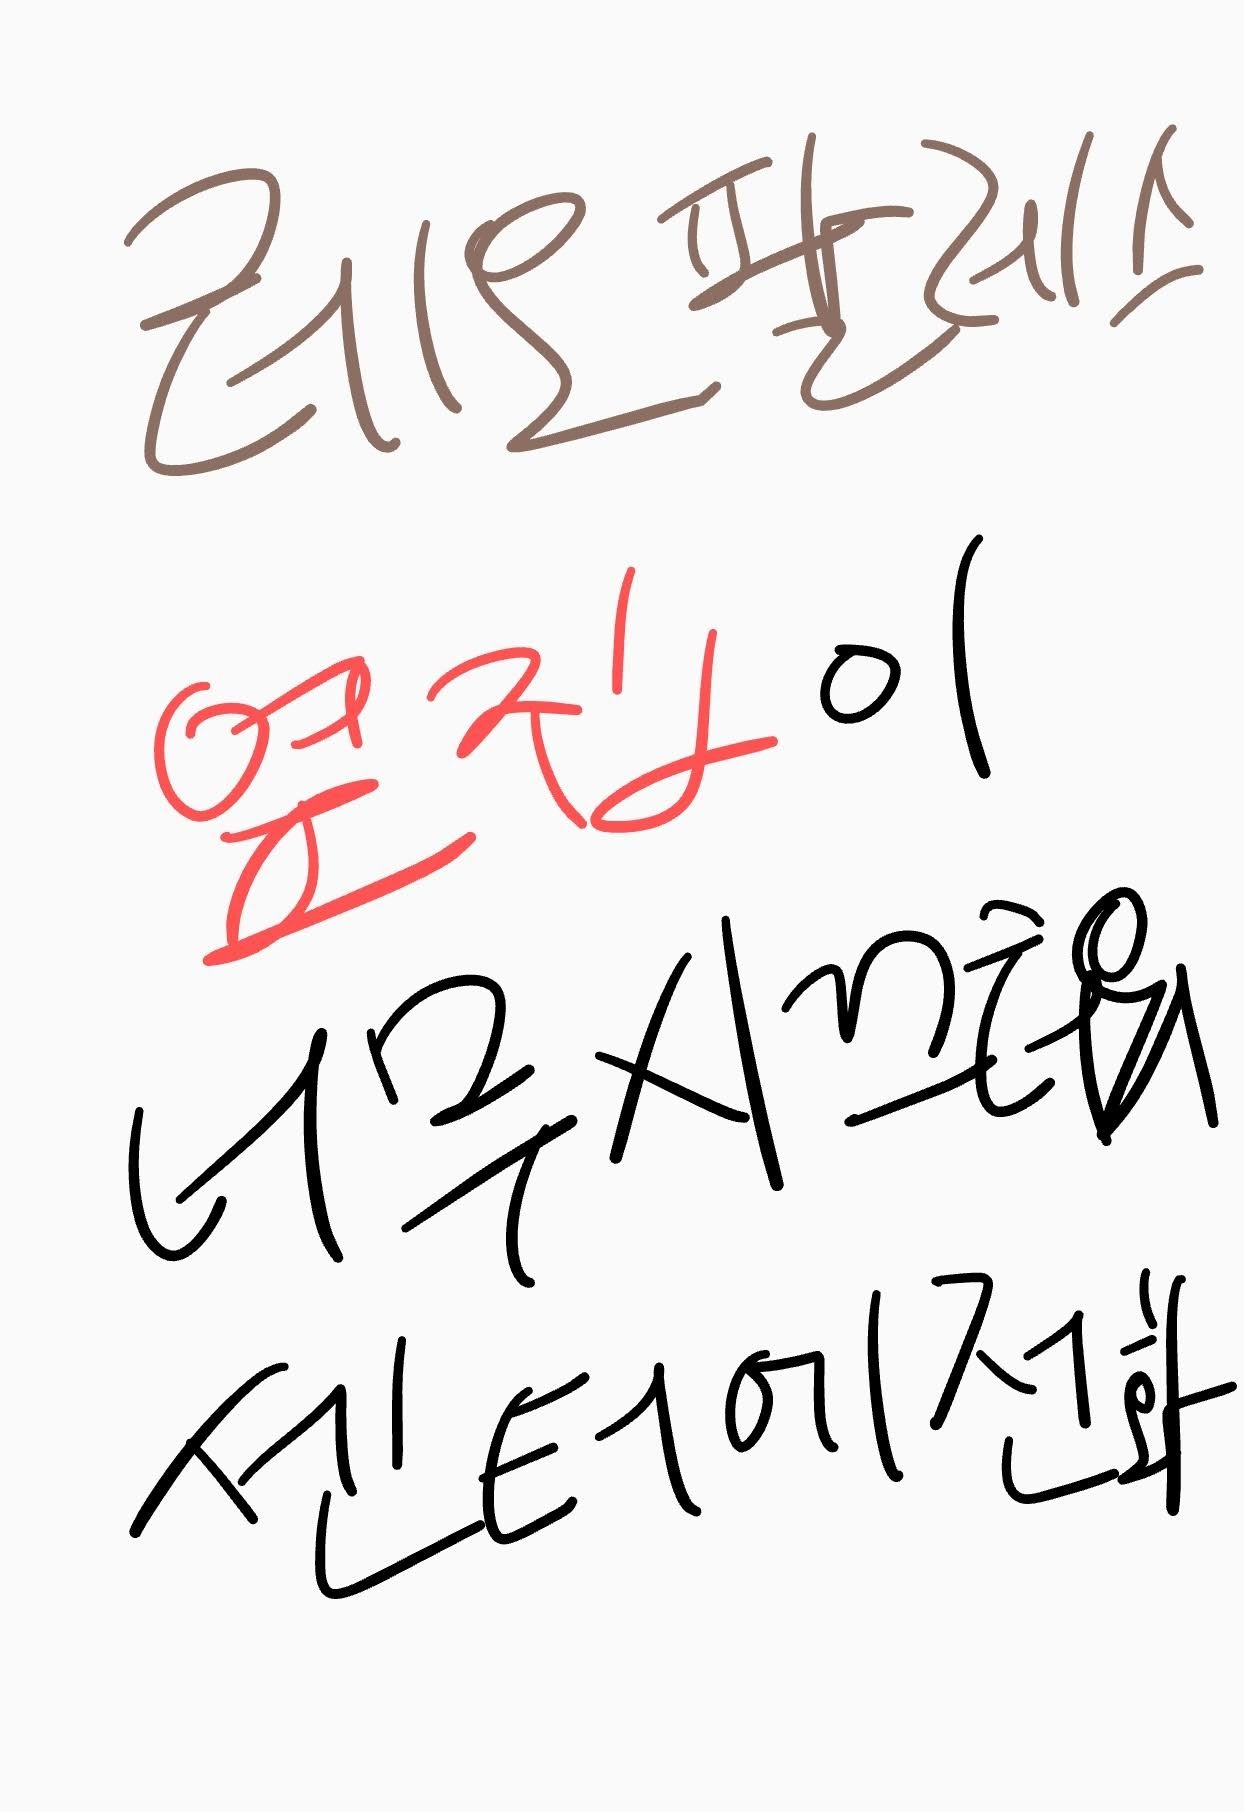 레오팔레스
옆집이
너무 시끄러워
센터에 전화